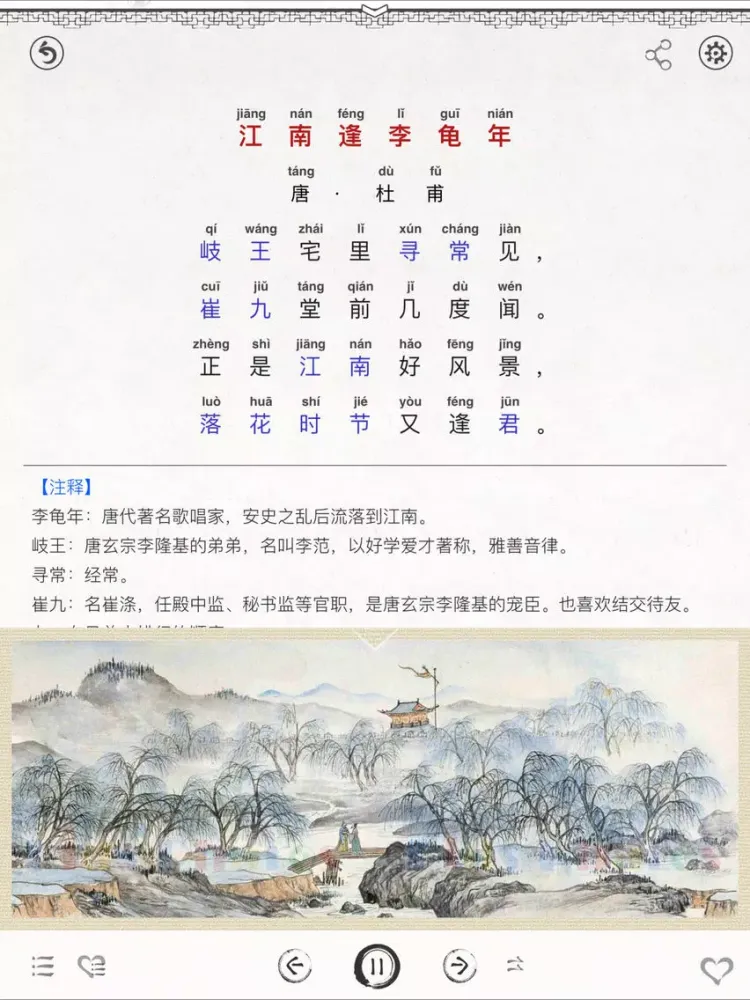 jiāng nán féng lǐ guī nián
江南逢李龟年
táng dù fǔ
唐·杜甫
qí wáng zhái lǐ xún cháng jiàn
岐王宅里寻常见，
cuī jiǔ táng qián jǐ dù wén
崔九堂前几度闻。
zhèng shì jiāng nán hǎo fēng jǐng
正是江南好风景，
luò huā shí jié yòu féng jūn
落花时节又逢君。
【注释】
李龟年：唐代著名歌唱家，安史之乱后流落到江南。
岐王：唐玄宗李隆基的弟弟，名叫李范，以好学爱才著称，雅善音律。
寻常：经常。
崔九：名崔涤，任殿中监、秘书监等官职，是唐玄宗李隆基的宠臣。也喜欢结交待友。